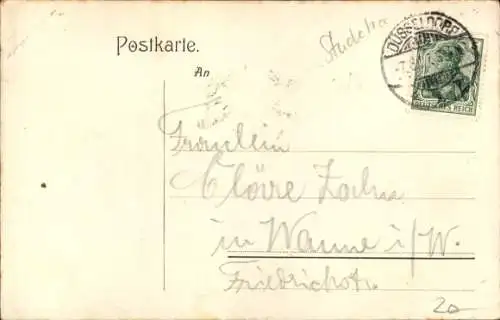 Studetia
DÜSSELDORF
Postkarte.
DEUTSCHES REICH
An
Fräulein
Cläire Zahn
in Wanne i/W.
Friedrichstr.
20